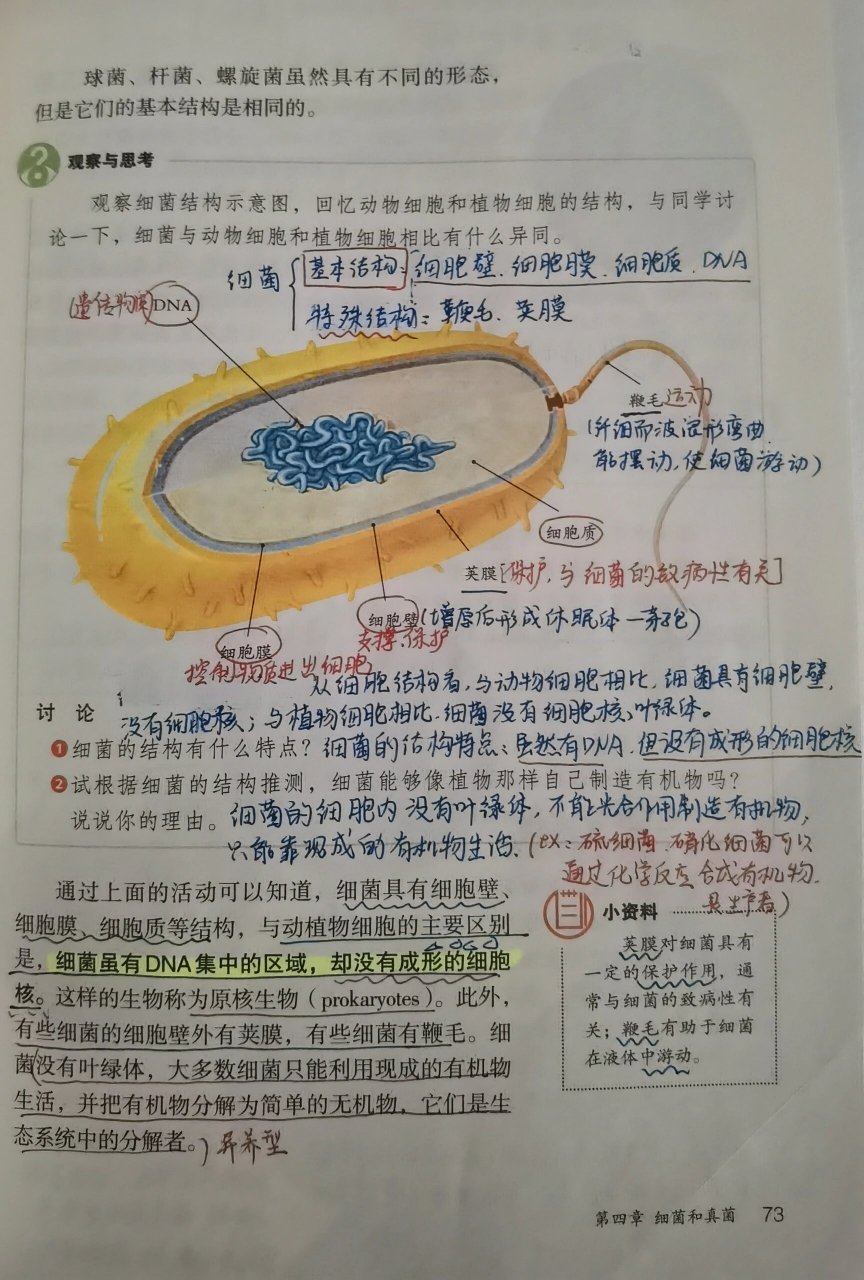 球菌、杆菌、螺旋菌虽然具有不同的形态，
但是它们的基本结构是相同的。
观察与思考
观察细菌结构示意图，回忆动物细胞和植物细胞的结构，与同学讨
论一下，细菌与动物细胞和植物细胞相比有什么异同。
细菌
基本结构：细胞壁、细胞膜、细胞质、DNA
特殊结构：鞭毛、荚膜
(遗传物质)DNA
鞭毛 运动
(纤细而波浪形弯曲
能摆动，使细菌游动)
细胞质
荚膜[保护，与细菌的致病性有关]
细胞壁(增厚后形成休眠体—芽孢)
支撑、保护
细胞膜
控制物质进出细胞
从细胞结构看，与动物细胞相比，细菌具有细胞壁，
没有细胞核；与植物细胞相比，细菌没有细胞核、叶绿体。
讨 论
❶细菌的结构有什么特点？细菌的结构特点：虽然有DNA，但没有成形的细胞核
❷试根据细菌的结构推测，细菌能够像植物那样自己制造有机物吗？
说说你的理由。细菌的细胞内没有叶绿体，不能光合作用制造有机物，
只能靠现成的有机物生活。(ex：硫细菌、硝化细菌可以
通过化学反应合成有机物.
是生产者)
通过上面的活动可以知道，细菌具有细胞壁、
细胞膜、细胞质等结构，与动植物细胞的主要区别
是，细菌虽有DNA集中的区域，却没有成形的细胞
核。这样的生物称为原核生物（prokaryotes）。此外，
有些细菌的细胞壁外有荚膜，有些细菌有鞭毛。细
菌没有叶绿体，大多数细菌只能利用现成的有机物
生活，并把有机物分解为简单的无机物，它们是生
态系统中的分解者。) 异养型
小资料
荚膜对细菌具有
一定的保护作用，通
常与细菌的致病性有
关；鞭毛有助于细菌
在液体中游动。
第四章 细菌和真菌 73